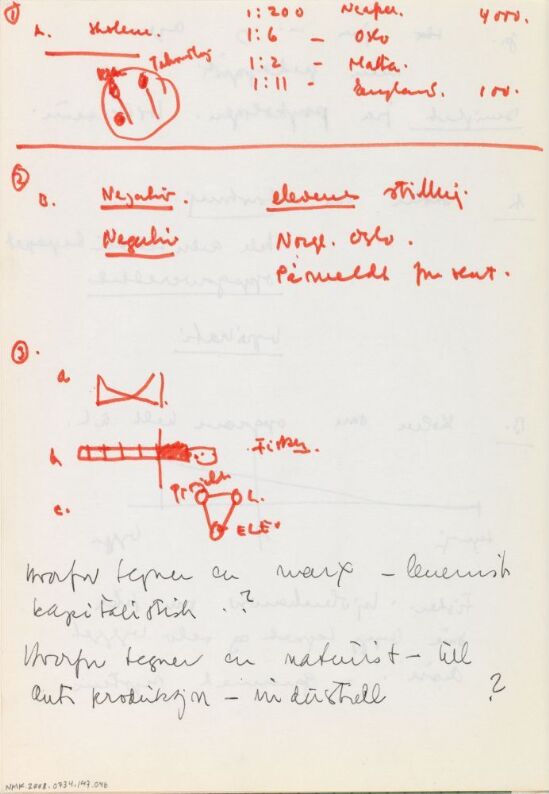 ①
A. skolene.
1:200 Neapel. 4000.
1:6 – Oslo
1:2 – Malta.
1:11 – England. 100.
Teknolog
②
B. Negativ. elevenes stilling.
Negativ Norge. Oslo.
Påmeldt for sent.
③.
a.
b. Fisken.
Prosjekt
c. L.
ELEV
Hvorfor tegner en marx – leninist
kapitalistisk ..?
Hvorfor tegner en naturist – till
anti produksjon – industriell ?
NMK.2008.0734.147.046